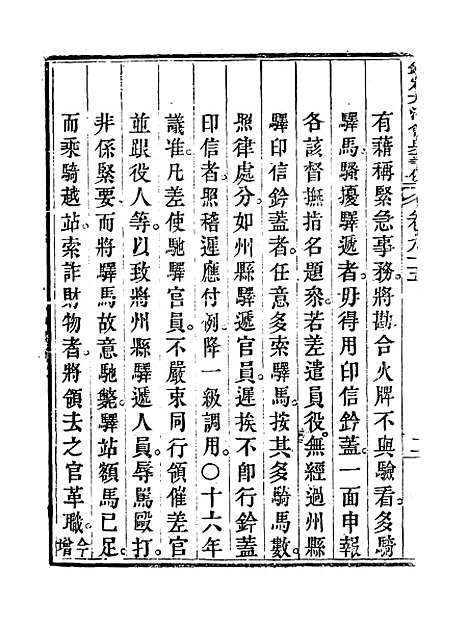 有藉稱緊急事務。將勘合火牌不與驗看。多騎
驛馬。騷擾驛遞者。毋得用印信鈐蓋。一面申報
各該督撫指名題叅。若差遣員役。無經過州縣
驛印信鈐蓋者。任意多索驛馬。按其多騎馬數。
照律處分。如州縣驛遞官員。遲挨不卽行鈐蓋
印信者。照稽遲應付例降一級調用。〇十六年
議准。凡差使馳驛官員。不嚴束同行領催差官
並跟役人等。以致將州縣驛遞人員。辱罵毆打。
非係緊要。而將驛馬故意馳斃。驛站額馬已足。
而乘騎越站。索詐財物者。將領去之官革職。今增